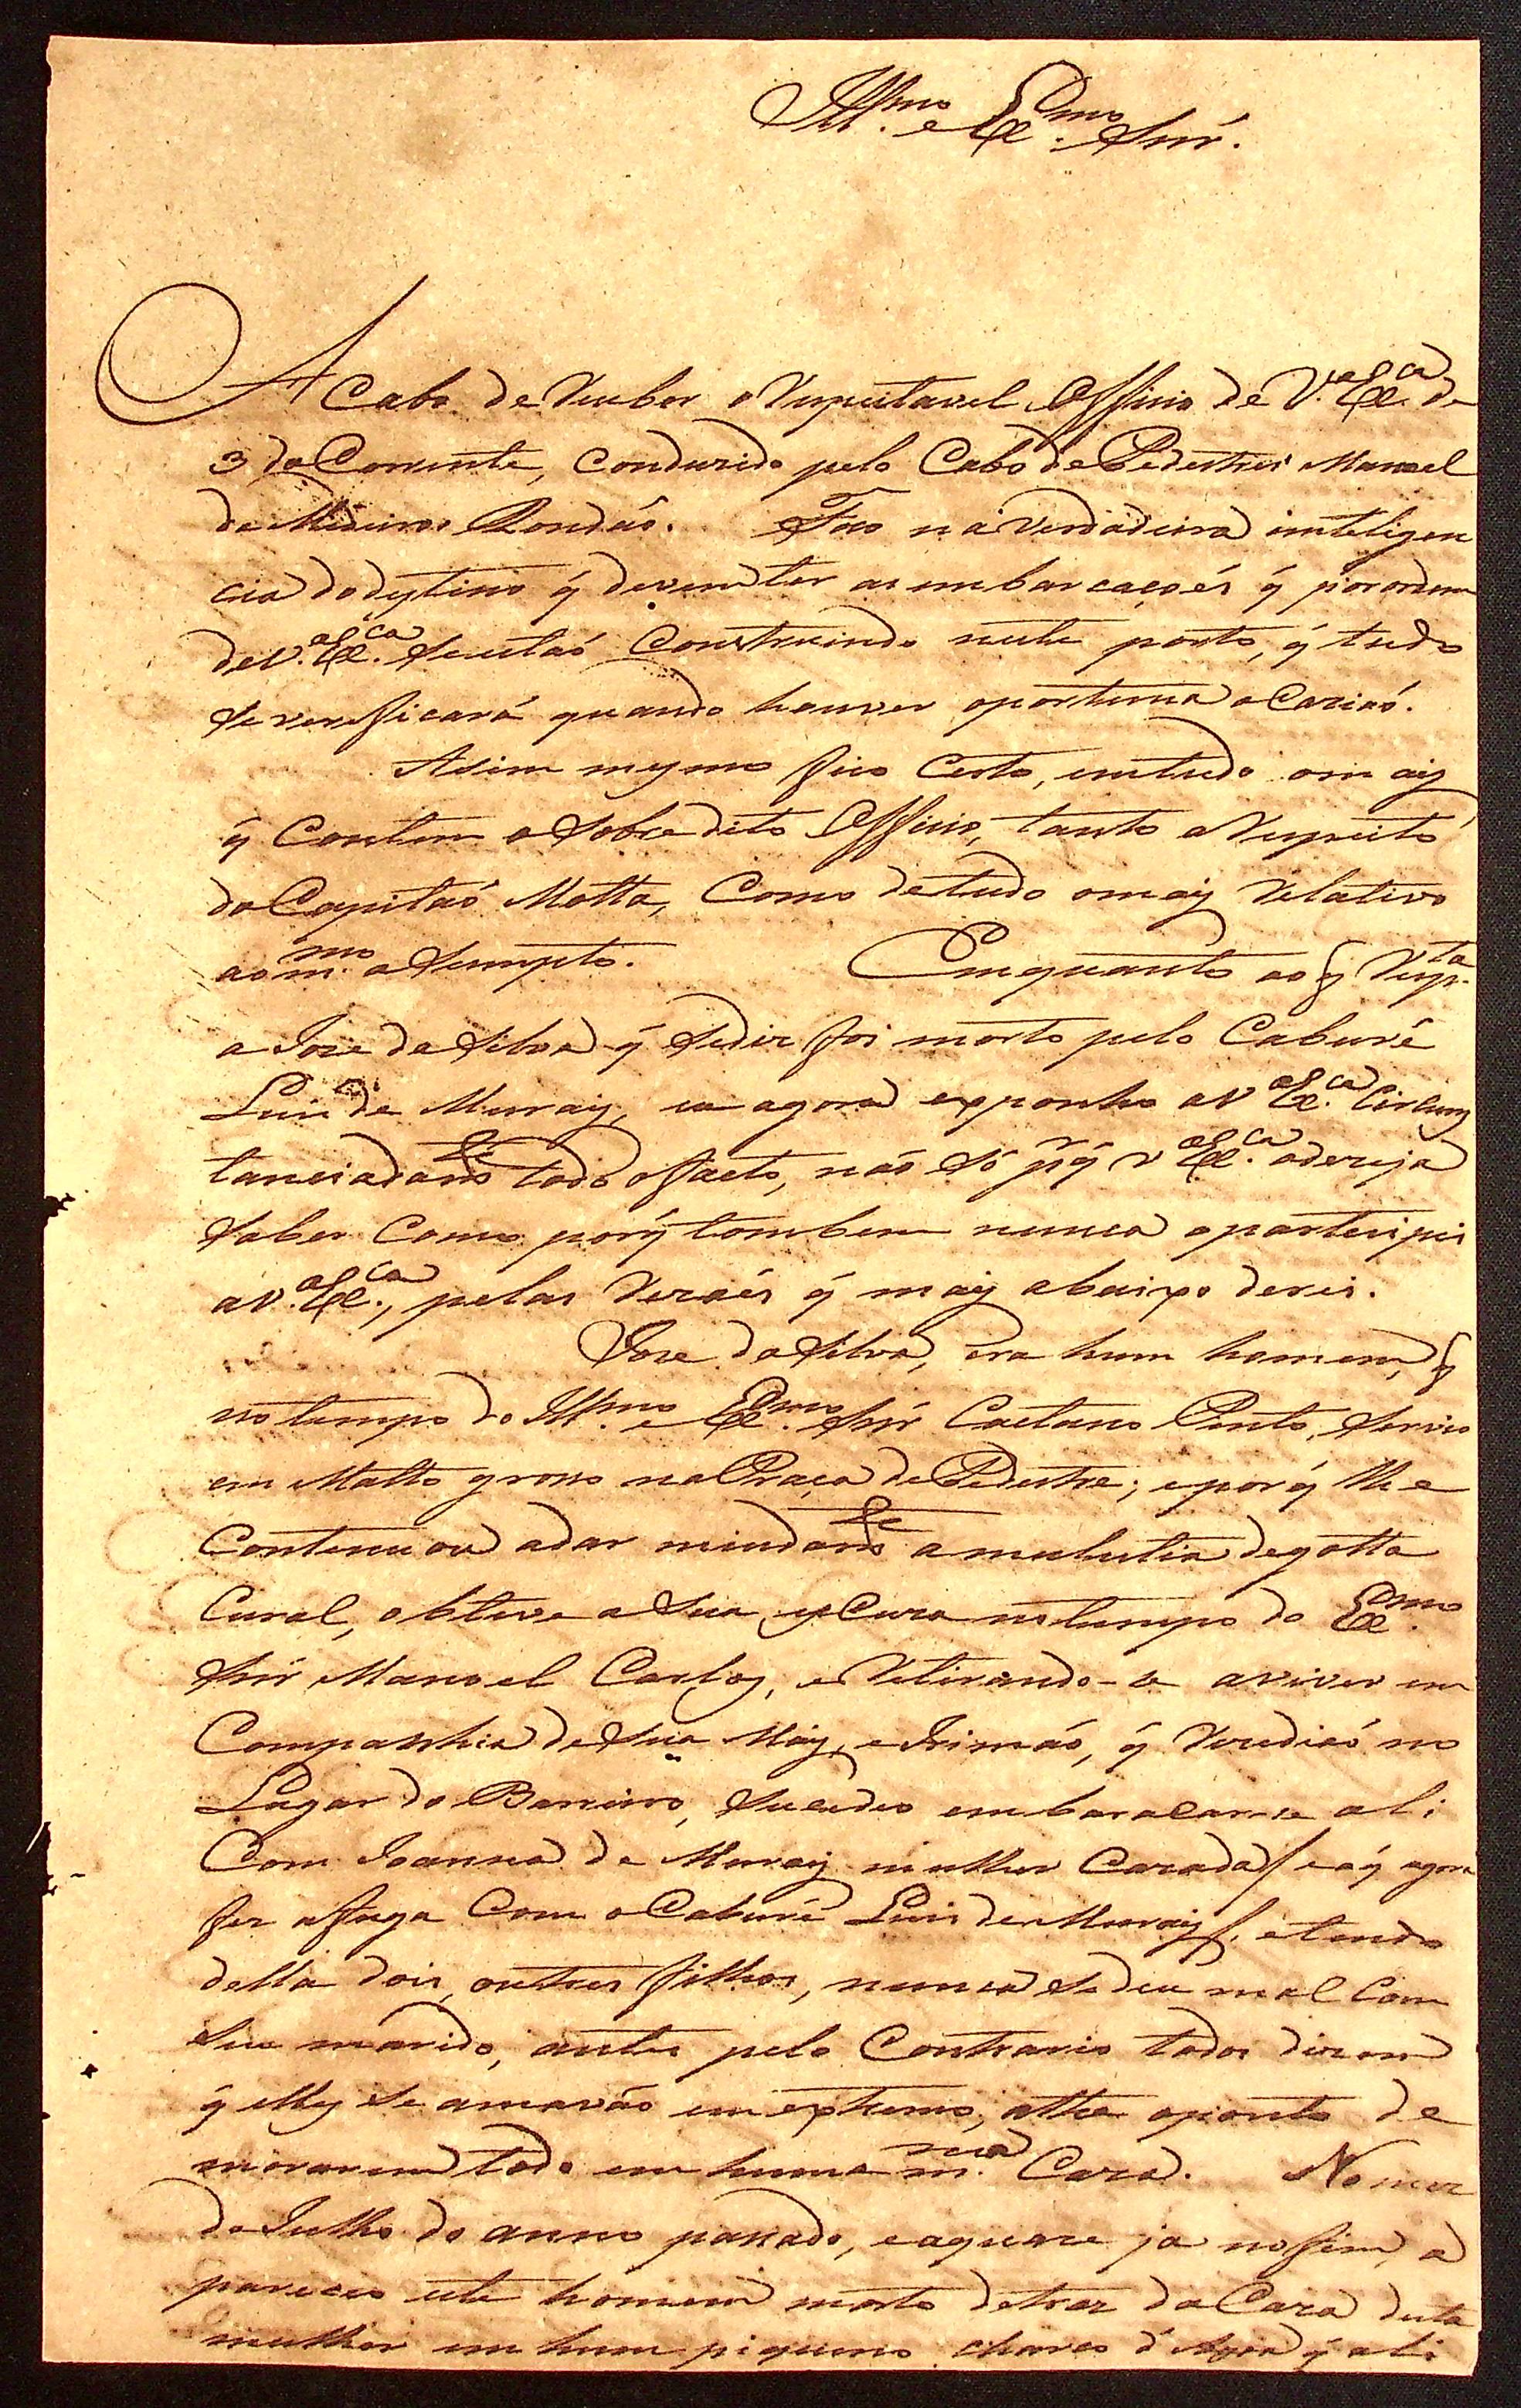 Ill.mo e Ex.mo Snr.
Acabo de receber o respeitavel Officio de V. Ex.ca de
3 do Corrente, Conduzido pelo Cabo de Pedestres Manoel
de Medeiros Rondáo. Fico na verdadeira inteligen
cia do dystino q̃ devem ter as embarcaçoẽs q̃ por ordem
de V. Ex.ca se estaó Construindo neste porto, q̃ tudo
se verificará quando houver oportuna ocaziaó.
Asim mesmo fico Certo, em tudo o maiz
q̃ Contem o Sobredito Officio, tanto a respeito
do Capitaó Motta, Como de tudo o maiz relativo
ao m.mo asumpto. Emquanto ao q̃ resp.ta
a Joze da Silva q̃ Se diz foi morto pelo Caburé
Luiz de Moraiz, eu agora exponho a V Ex.ca Circuns
tanciadam.te todo o facto, náo só p.r q̃ V Ex.ca o dezeja
Saber Como porq̃ tombem nunca o partecipei
a V. Ex.ca, pelas rezoẽs q̃ maiz abaixo derei.
Joze da Silva, era hum homem, q̃
no tempo do Ill.mo e Ex.mo Snr Caetano Pinto, Servio
em Matto groso na Praça de Pedestre; e por q̃ lhe
Contenuou a dar miudam.te a mulestia de gotta
Coral, obteve a Sua escuza no tempo do Ex.mo
Snr Manoel Carloz, e retirando-se a viver em
Companhia de Sua Máy, e Irimáo, q̃ rezediaó no
Lugar do Barreiro, Sucedeo embaraçarse ali
Com Joanna de Moraiz mulher Cazada / e a q̃ agora
fez a fuga Com o Caburé Luiz de Moraiz /, e tendo
della dois, ou tres filhos, nunca Se deu mal Com
Seu marido, antes pelo Contrario todos dizem
q̃ elles Se amaváo em extremo, athe o ponto de
morarem todo em huma m.ma Caza. No mez
de Julho do anno pasado, e aquaze ja no fim, a
pareceo este homem morto detraz da Caza desta
mulher em hum piqueno charco d'Agoa q̃ ali